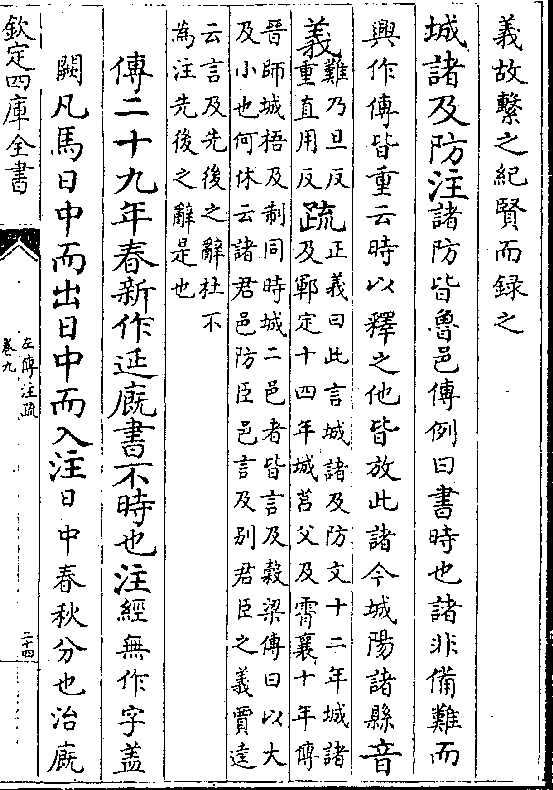 義故繫之紀賢而録之
城諸及防注諸防皆魯邑傳例曰書時也諸非備難而
興作傳皆重云時以釋之他皆放此諸今城陽諸縣音
義難乃旦反
重直用反
疏正義曰此言城諸及防文十二年城諸
及鄆定十四年城莒父及霄襄十年傳
晉師城梧及制同時城二邑者皆言及穀梁傳曰以大
及小也何休云諸君邑防臣邑言及别君臣之義賈逵
云言及先後之辭杜不
為注先後之辭是也
傳二十九年春新作延廐書不時也注經無作字盖
闕凡馬日中而出日中而入注日中春秋分也治廐
欽定四庫全書
左傳注疏
卷九
二十四